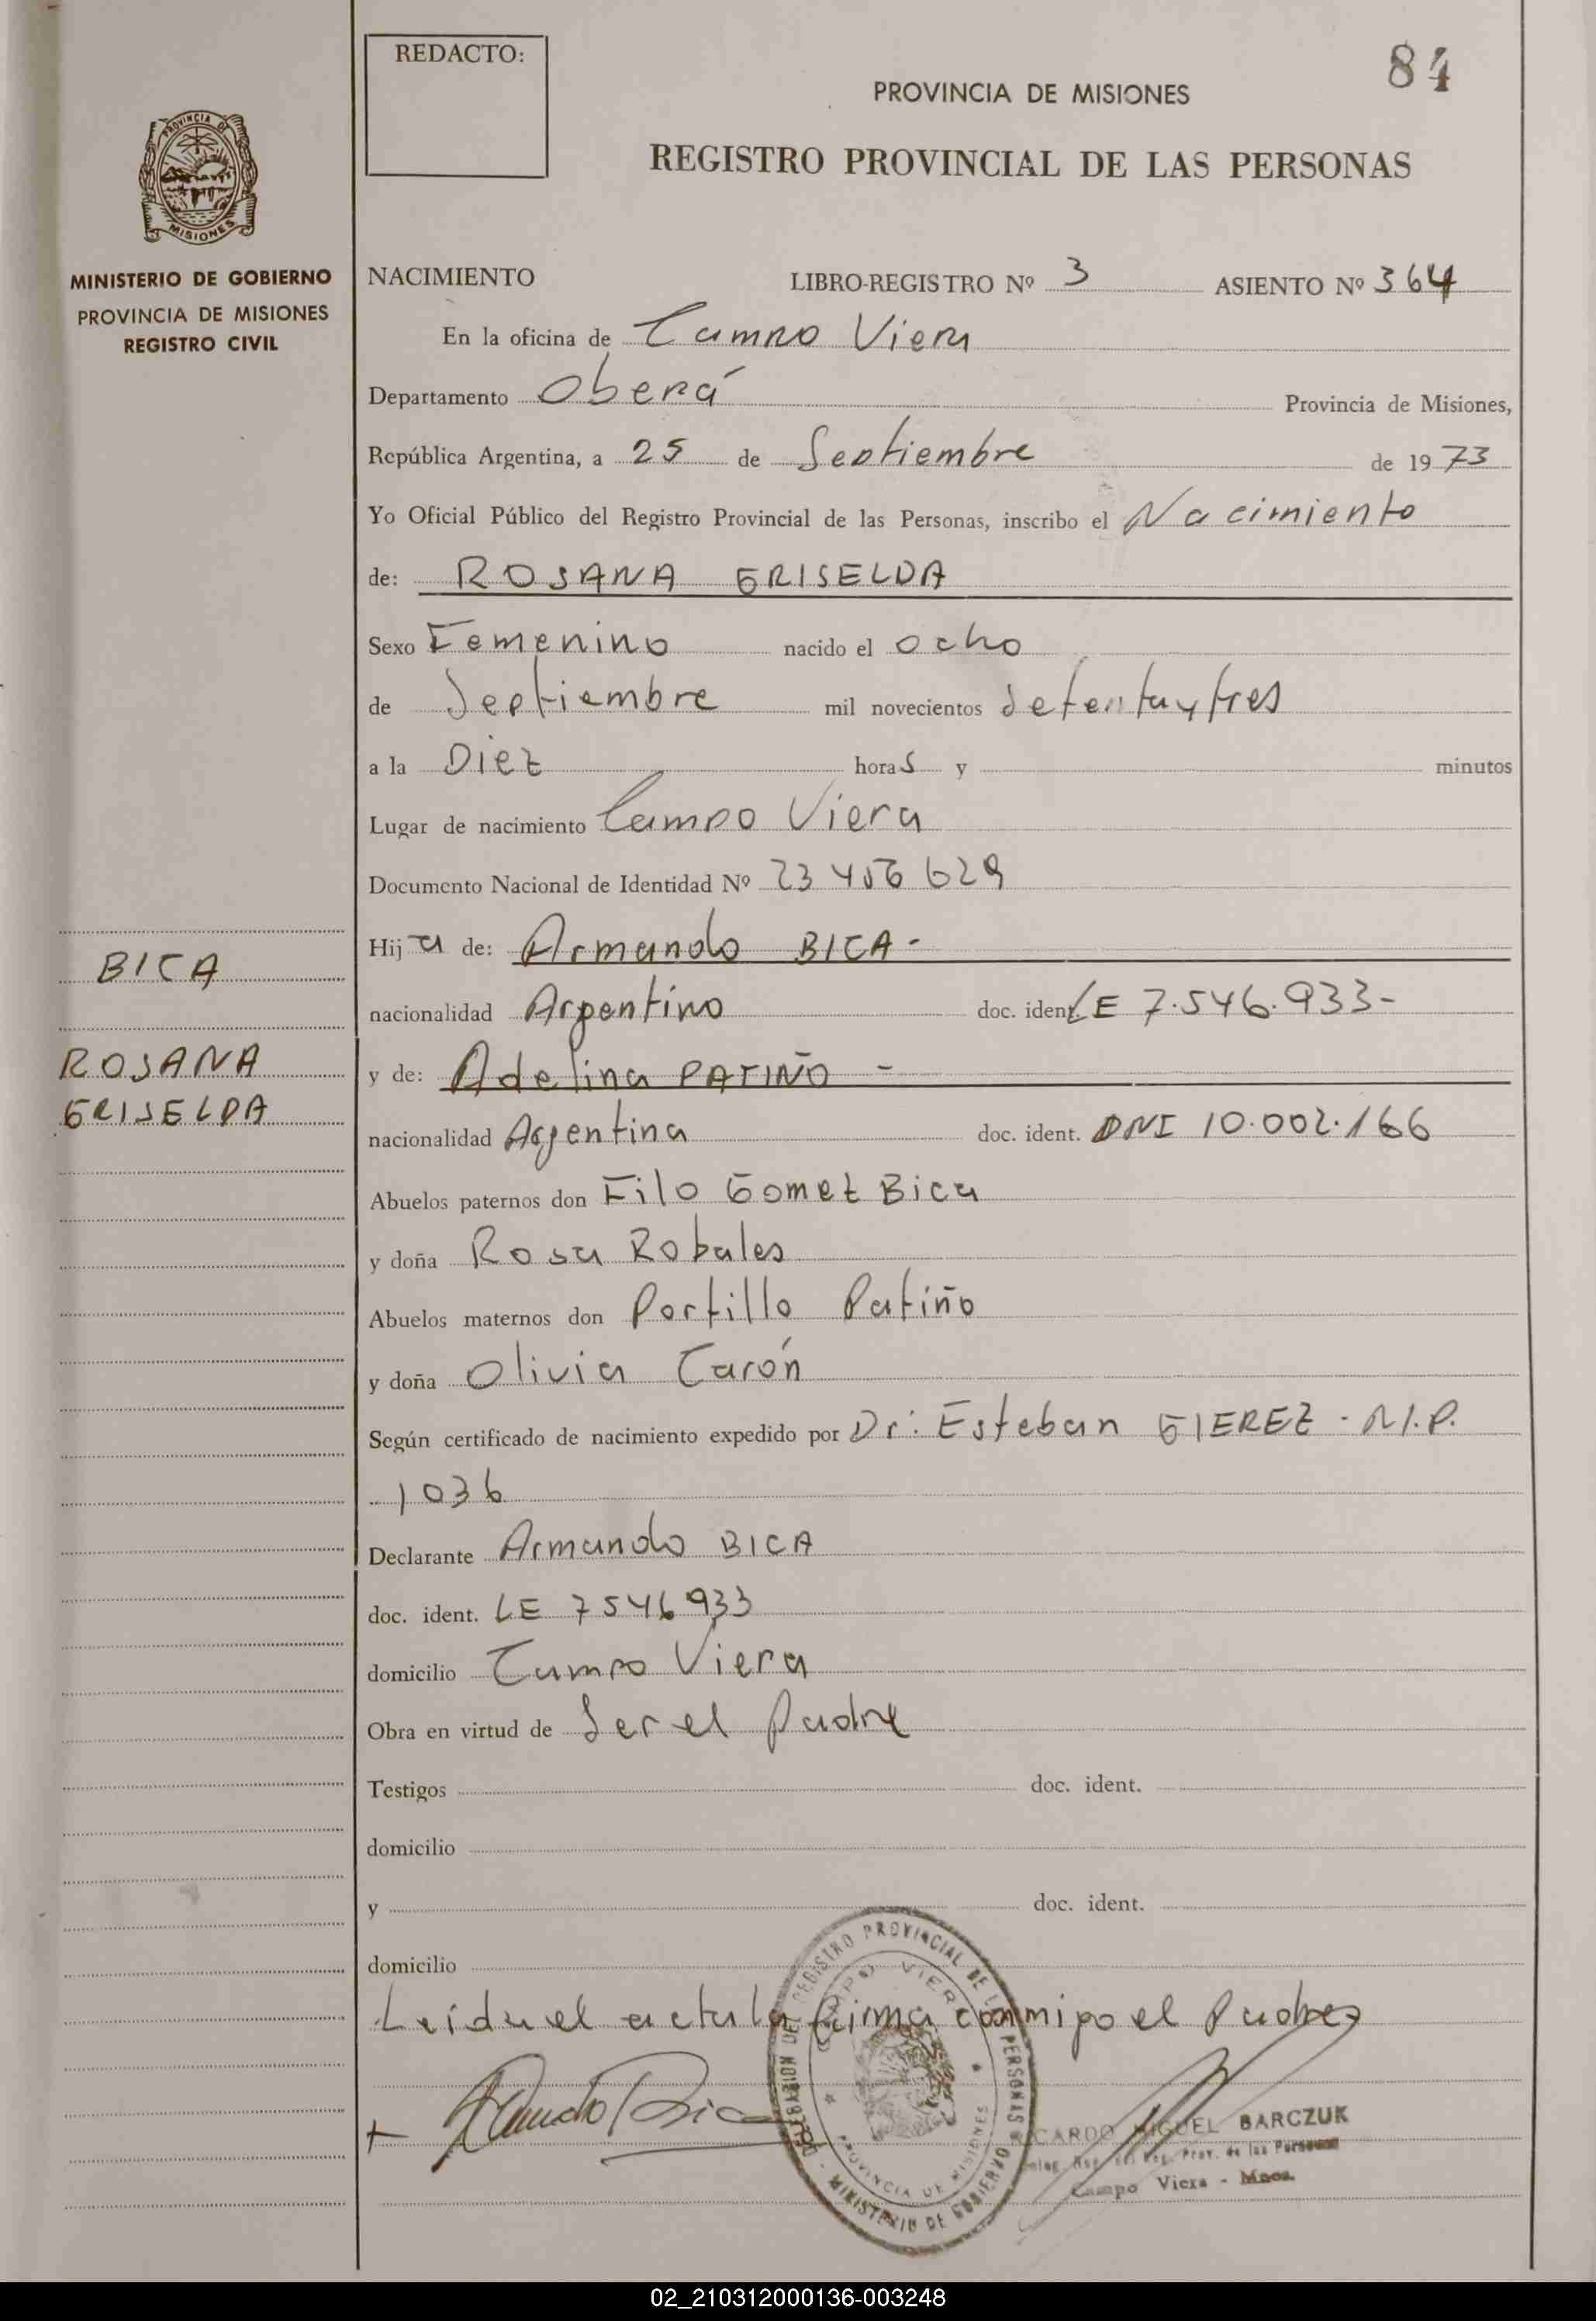 REDACTO:
84
PROVINCIA DE MISIONES
REGISTRO PROVINCIAL DE LAS PERSONAS
PROVINCIA DE
MISIONES
MINISTERIO DE GOBIERNO
PROVINCIA DE MISIONES
REGISTRO CIVIL
NACIMIENTO LIBRO-REGISTRO Nº 3 ASIENTO Nº 364
En la oficina de Campo Viera
Departamento Oberá Provincia de Misiones,
República Argentina, a 25 de Septiembre de 1973
Yo Oficial Público del Registro Provincial de las Personas, inscribo el Nacimiento
de: ROSANA GRISELDA
Sexo Femenino nacido el ocho
de Septiembre mil novecientos setentaytres
a la Diez horas y minutos
Lugar de nacimiento Campo Viera
Documento Nacional de Identidad Nº 23 456 629
BICA
Hija de: Armando BICA -
nacionalidad Argentino doc. ident. LE 7.546.933-
ROSANA
GRISELDA
y de: Adelina PATIÑO -
nacionalidad Argentina doc. ident. DNI 10.002.166
Abuelos paternos don Filo Gomez Bica
y doña Rosa Robales
Abuelos maternos don Portillo Patiño
y doña Olivia Carón
Según certificado de nacimiento expedido por Dr: Esteban GIEREZ - M.P.
1036
Declarante Armando BICA
doc. ident. LE 7546933
domicilio Campo Viera
Obra en virtud de Ser el padre
Testigos doc. ident.
domicilio
y doc. ident.
domicilio
Leida el acta la firma conmigo el Padre
DELEGACION DEL REGISTRO PROVINCIAL DE LAS PERSONAS
CAMPO VIERA
PROVINCIA DE MISIONES
MINISTERIO DE GOBIERNO
Armando Bica
RICARDO MIGUEL BARCZUK
Reg. Prov. de las Personas
Campo Viera - Mnes.
02_210312000136-003248